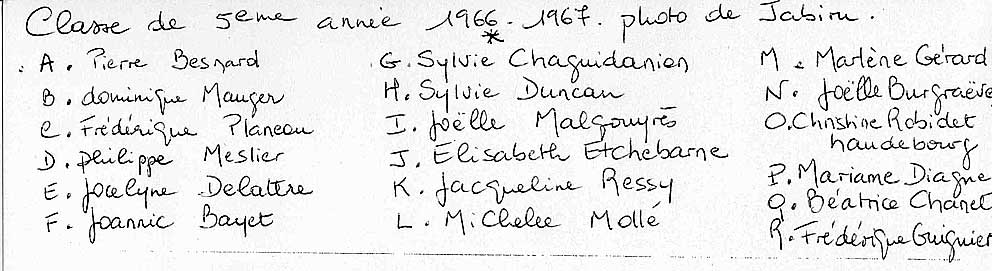 Classe de 5eme année 1966-1967. photo de Jabiru.
*
A. Pierre Besnard
B. dominique Mauger
C. Frédérique Planeau
D. philippe Meslier
E. Jocelyne Delattre
F. Joannic Bayet
G. Sylvie Chaguidanien
H. Sylvie Duncan
I. Joëlle Malgouyrès
J. Elisabeth Etchebarne
K. Jacqueline Ressy
L. Michelee Mollé
M. Marlène Gérard
N. Joëlle Burgraëve
O. Christine Robidet
haudebourg
P. Mariame Diagne
Q. Béatrice Chanel
R. Frédérique Guignier